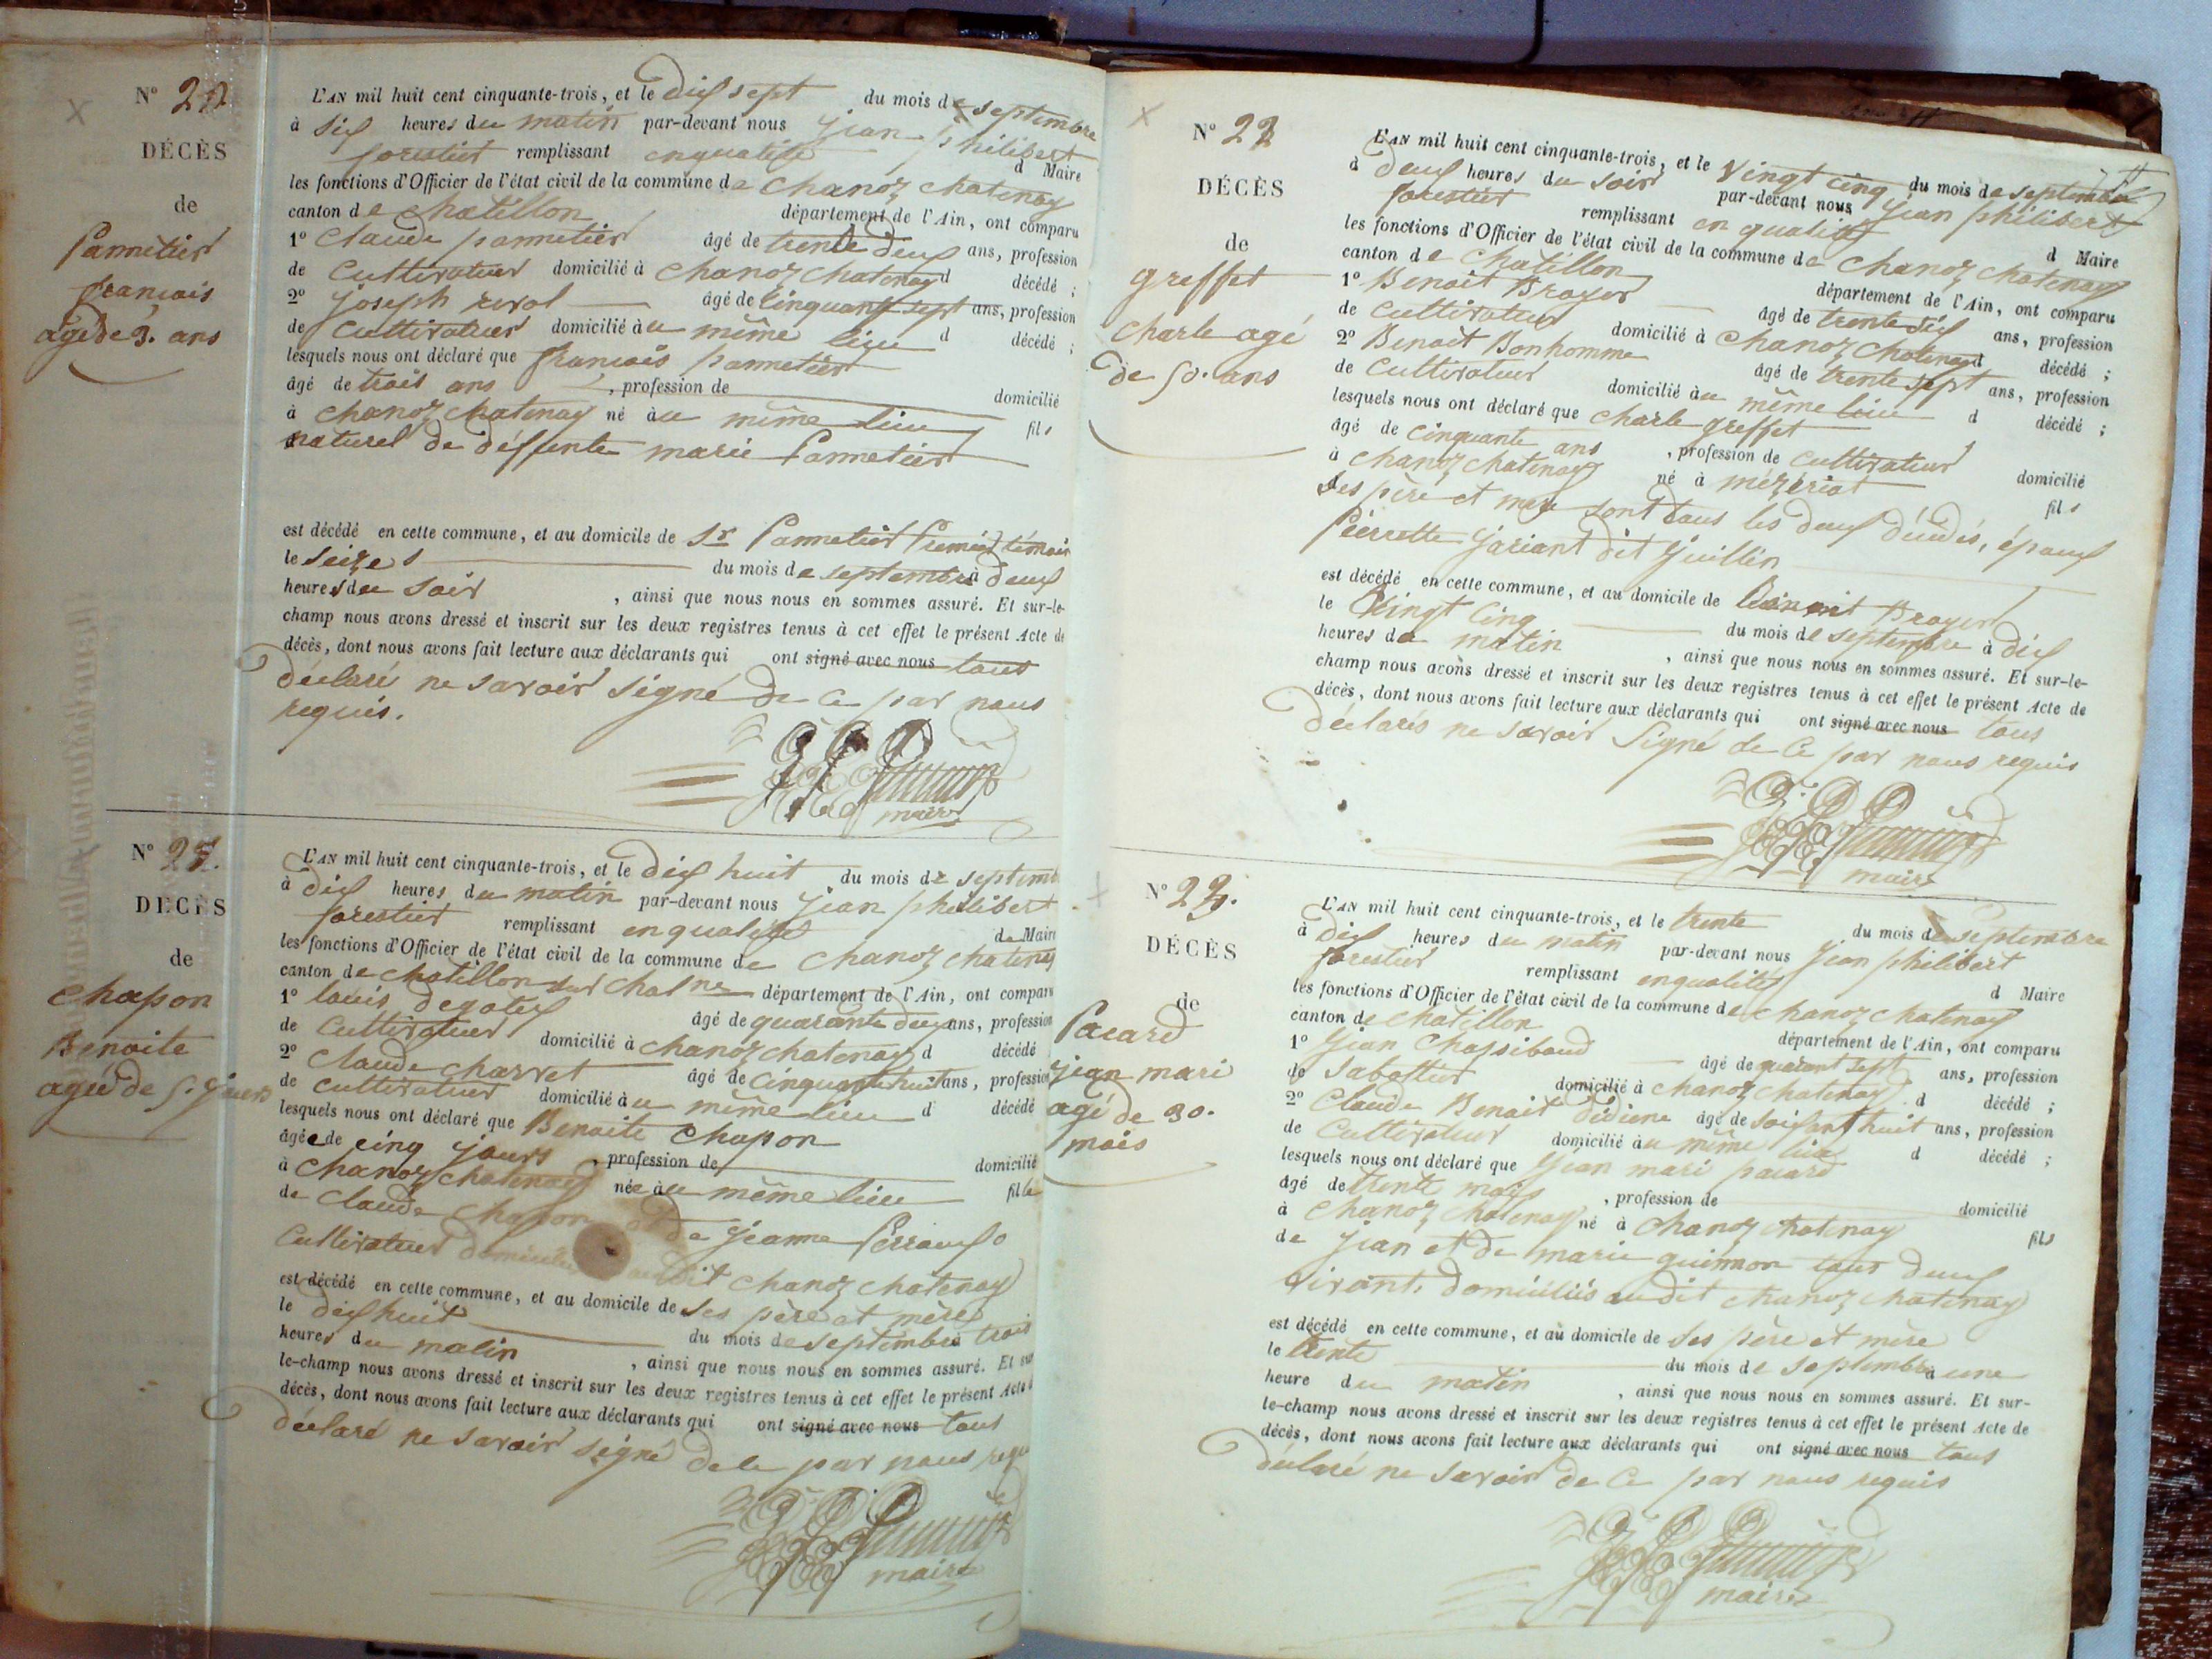 DÉCÈS
de
Pannetier
francois
agé de 3. ans
L'AN mil huit cent cinquante-trois, et le dix sept du mois de septembre
à six heures du matin par-devant nous jean philibert
forestier remplissant en qualité d Maire
les fonctions d'Officier de l'état civil de la commune de chanoz chatenay
canton de chatillon département de l'Ain, ont comparu
1° Claude pannetier âgé de trente deux ans, profession
de Cultivateur domicilié à Chanoz chatenay d décédé ;
2° joseph revol âgé de cinquante sept ans, profession
de Cultivateur domicilié au même lieu d décédé ;
lesquels nous ont déclaré que francois pannetier
âgé de trois ans , profession de domicilié
à chanoz chatenay né au même lieu fils
naturel de défunte marie Pannetier
est décédé en cette commune, et au domicile de Sr Pannetier Premier témoin
le seize du mois de septembre à deux
heures du soir , ainsi que nous nous en sommes assuré. Et sur-le-
champ nous avons dressé et inscrit sur les deux registres tenus à cet effet le présent Acte de
décès, dont nous avons fait lecture aux déclarants qui ont signé avec nous tous
déclaré ne savoir signé de ce par nous
requis.
maire
DÉCÈS
de
Chapon
Benoite
agée de 5. jours
L'AN mil huit cent cinquante-trois, et le dix huit du mois de septemb
à dix heures du matin par-devant nous jean philibert
forestier remplissant en qualité de Maire
les fonctions d'Officier de l'état civil de la commune de chanoz chatenay
canton de chatillon sur chalne département de l'Ain, ont comparu
1° louis degoteix âgé de quarante deux ans, profession
de Cultivateur domicilié à chanoz chatenay d décédé
2° Claude charvet âgé de cinquante huit ans, profession
de cultivateur domicilié au même lieu d décédé
lesquels nous ont déclaré que Benoite Chapon
âgée de cinq jours , profession de domicilié
à chanoz chatenay née au même lieu fille
de Claude chapon et de jeanne Perraux
Cultivateur domiciliés audit chanoz chatenay
est décédé en cette commune, et au domicile de ses père et mère
le dix huit du mois de septembre à trois
heures du matin , ainsi que nous nous en sommes assuré. Et sur
le-champ nous avons dressé et inscrit sur les deux registres tenus à cet effet le présent Acte
décès, dont nous avons fait lecture aux déclarants qui ont signé avec nous tous
déclaré ne savoir signé de ce par nous requ
maire
N° 22
DÉCÈS
de
greffet
Charle agé
de 50. ans
L'AN mil huit cent cinquante-trois, et le Vingt cinq du mois de septembre
à deux heures du soir par-devant nous jean philibert
forestier remplissant en qualité d Maire
les fonctions d'Officier de l'état civil de la commune de chanoz chatenay
canton de Chatillon département de l'Ain, ont comparu
1° Benoit Broyer âgé de trente six ans, profession
de Cultivateur domicilié à Chanoz chatenay d décédé ;
2° Benoit Bonhomme âgé de trente sept ans, profession
de Cultivateur domicilié au même lieu d décédé ;
lesquels nous ont déclaré que Charle greffet
âgé de cinquante ans , profession de Cultivateur domicilié
à chanoz chatenay né à mézériat fils
des père et mere sont tous les deux décédés, époux
Pierrette Jariant dit Juillin
est décédé en cette commune, et au domicile de Benoit Broyer
le Vingt cinq du mois de septembre à dix
heures du matin , ainsi que nous nous en sommes assuré. Et sur-le-
champ nous avons dressé et inscrit sur les deux registres tenus à cet effet le présent Acte de
décès, dont nous avons fait lecture aux déclarants qui ont signé avec nous tous
déclarés ne savoir signé de ce par nous requis
maire
N° 23.
DÉCÈS
de
Pacard
jean mari
agé de 30.
mois
L'AN mil huit cent cinquante-trois, et le trente du mois de septembre
à dix heures du matin par-devant nous jean philibert
forestier remplissant en qualité d Maire
les fonctions d'Officier de l'état civil de la commune de chanoz chatenay
canton de chatillon département de l'Ain, ont comparu
1° jean Chassiboud âgé de quarant sept ans, profession
de Sabottier domicilié à chanoz chatenay d décédé ;
2° Claude Benoit dédiene âgé de soisant huit ans, profession
de Cultivateur domicilié au même lieu d décédé ;
lesquels nous ont déclaré que jean mari pacard
âgé de trente mois , profession de domicilié
à Chanoz chatenay né à Chanoz chatenay fils
de jean et de marie guinnon tous deux
vivant. domiciliés audit chanoz chatenay
est décédé en cette commune, et au domicile de ses père et mère
le trente du mois de septembre à une
heure du matin , ainsi que nous nous en sommes assuré. Et sur-
le-champ nous avons dressé et inscrit sur les deux registres tenus à cet effet le présent Acte de
décès, dont nous avons fait lecture aux déclarants qui ont signé avec nous tous
déclaré ne savoir de ce par nous requis
maire